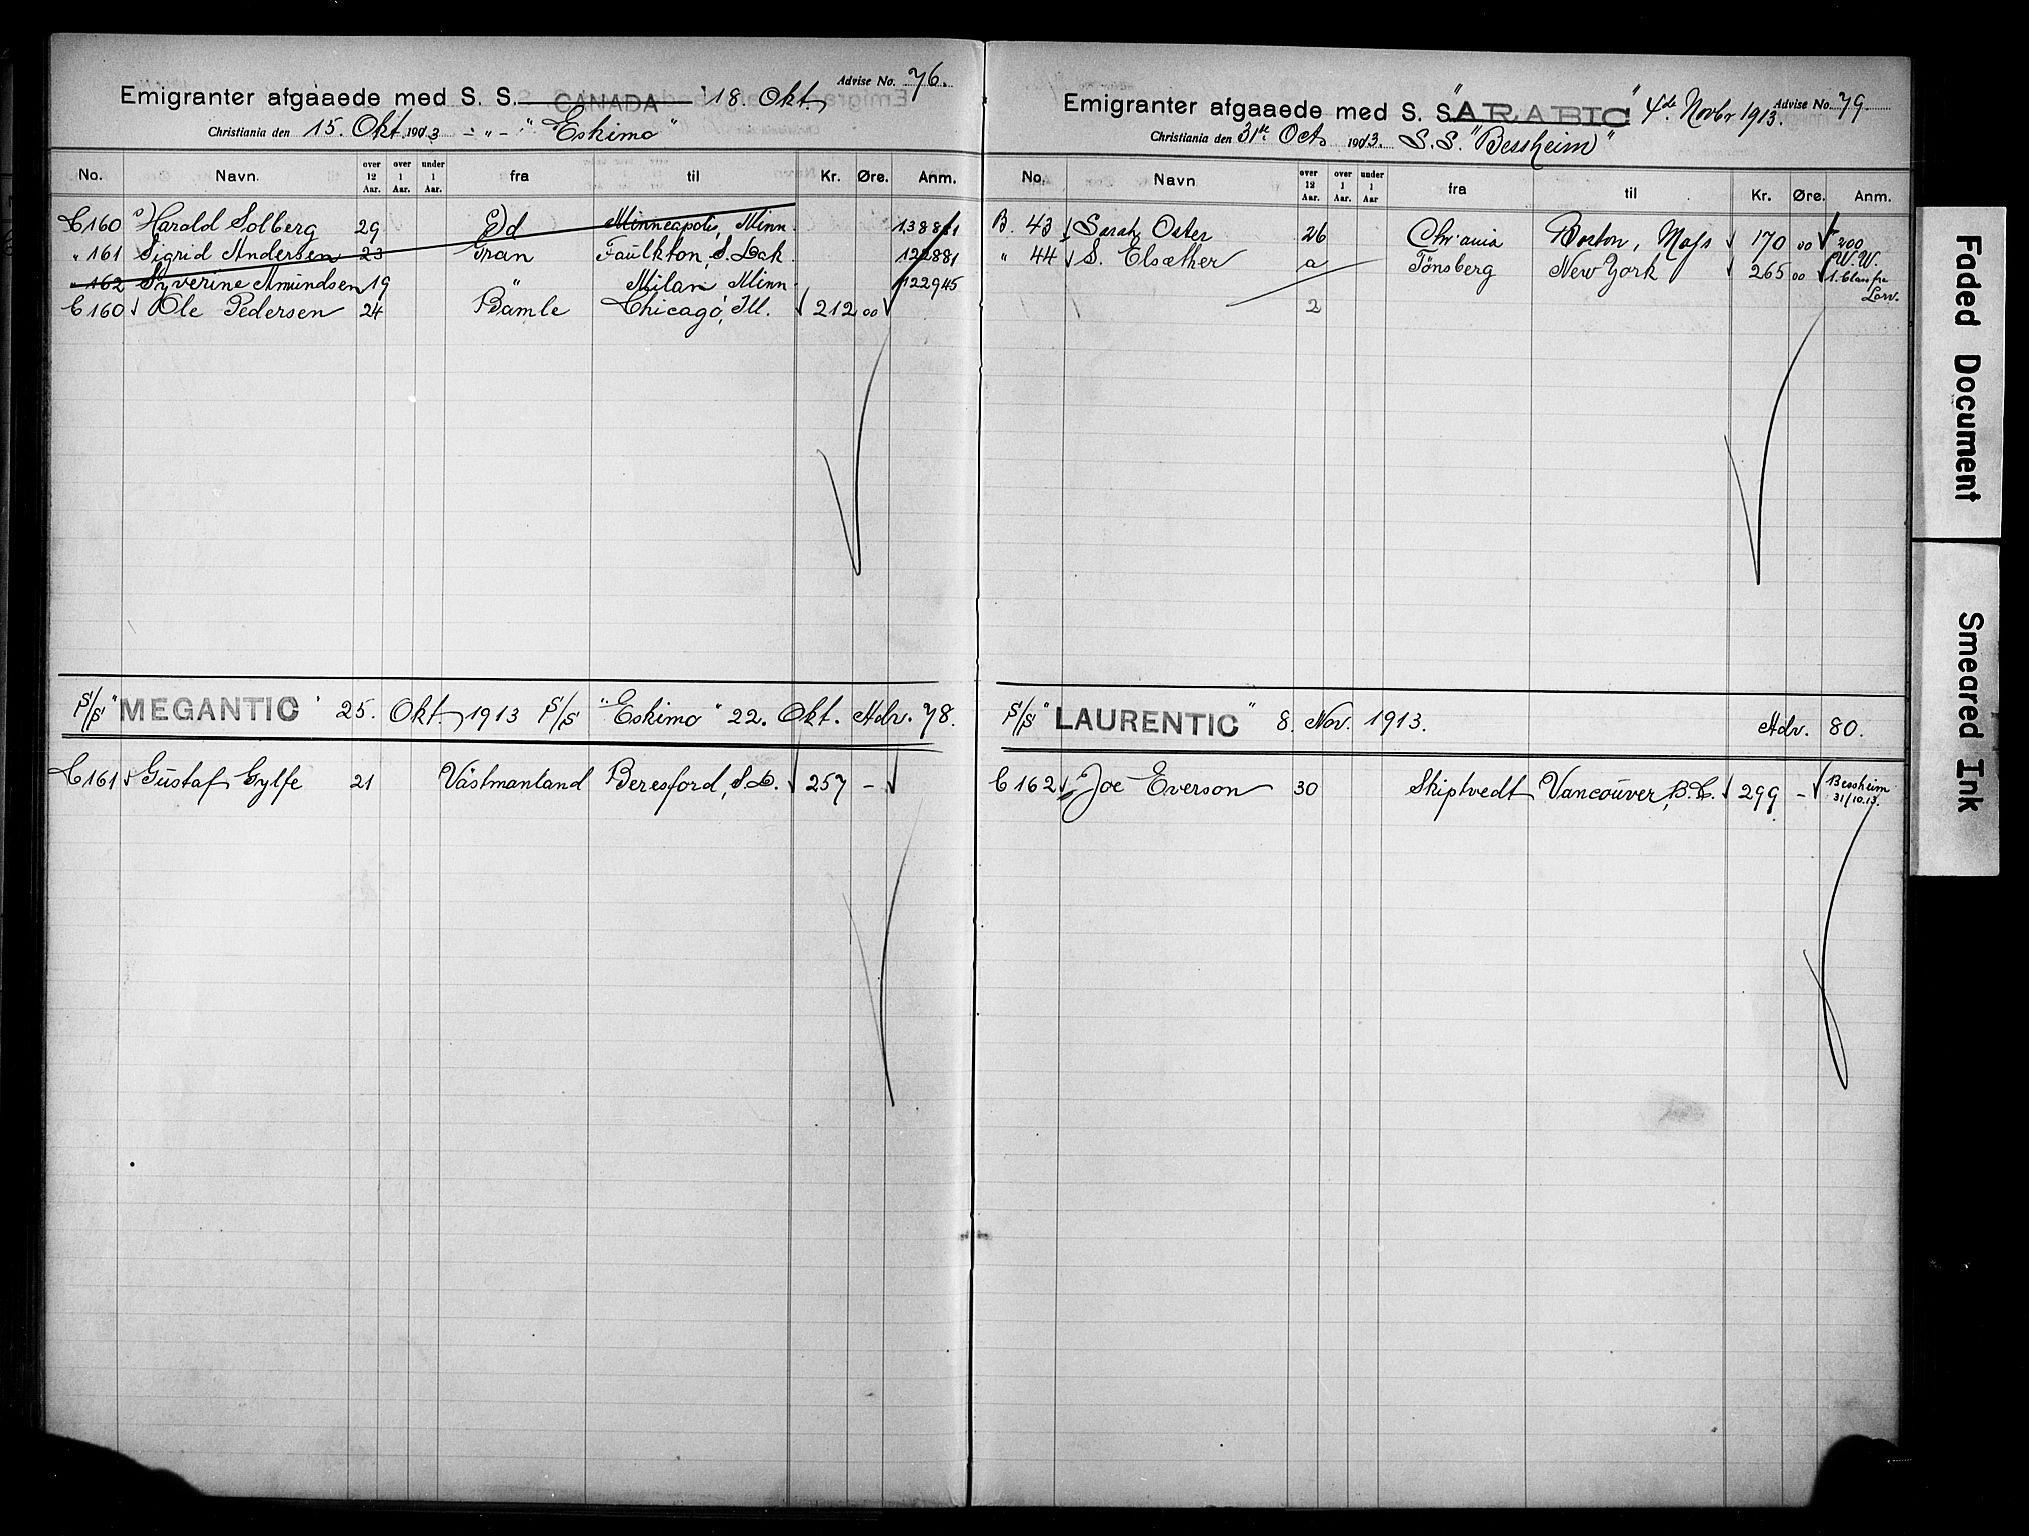 Advise No. 76.
Emigranter afgaaede med S. S. CANADA 18. Okt.
Christiania den 15. Okt. 1913 - „ - "Eskimo"
No. Navn. over 12 Aar. over 1 Aar. under 1 Aar. fra til Kr. Øre. Anm.
C160 Harold Solberg 29 Ed Minneapolis, Minn. 138881
" 161 Sigrid Andersen 23 Gran Faulkton, S. Dak. 122881
" 162 Syverine Amundsen 19 Milan Minn. 122945
C160 Ole Pedersen 24 Bamle Chicago, Ill. 212 00
S/S "MEGANTIC" 25. Okt. 1913 S/S "Eskimo" 22. Okt. Adv. 78.
C161 Gustaf Gylfe 21 Västmanland Beresford, S.D. 257 -
Advise No. 79
Emigranter afgaaede med S. S. "ARABIC" 4de Novbr 1913.
Christiania den 31te Oct. 1913. S.S. "Bessheim"
No. Navn over 12 Aar. over 1 Aar. under 1 Aar fra til Kr. Øre. Anm.
B. 43 Sarah Oster 26 Chr.ania Boston, Mass 170 00 200
" 44 S. Elsæther a Tönsberg New York 265 00 W.W.
1. Class fra
Larv.
2
S/S "LAURENTIC" 8. Nov. 1913. Adv. 80.
C162 Joe Everson 30 Skiptvedt Vancouver, B.C. 299 - Bessheim
31/10.13.
Faded Document
Smeared Ink